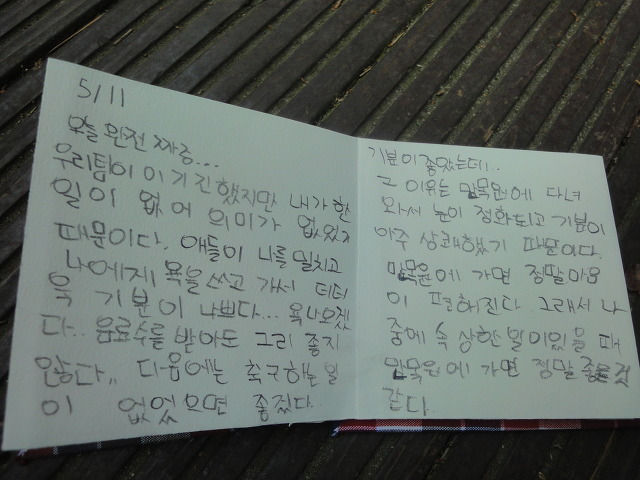 5/11
오늘 완전 짜증...
우리팀이 이기긴 했지만 내가 한
일이 없어 의미가 없었기
때문이다. 애들이 나를 밀치고
나에게 욕을 쓰고 가서 더더
욱 기분이 나쁘다... 욕나오겠
다.. 음료수를 받아도 그리 좋지
않다,, 다음에는 축구하는 일
이 없었으면 좋겠다.
기분이 좋았는데!..
그 이유는 만목원에 다녀
와서 눈이 정화되고 기분이
아주 상쾌했기 때문이다.
만목원에 가면 정말 마음
이 편해진다. 그래서 나
중에 속상한 일이 있을 때
만목원에 가면 정말 좋을 것
같다.